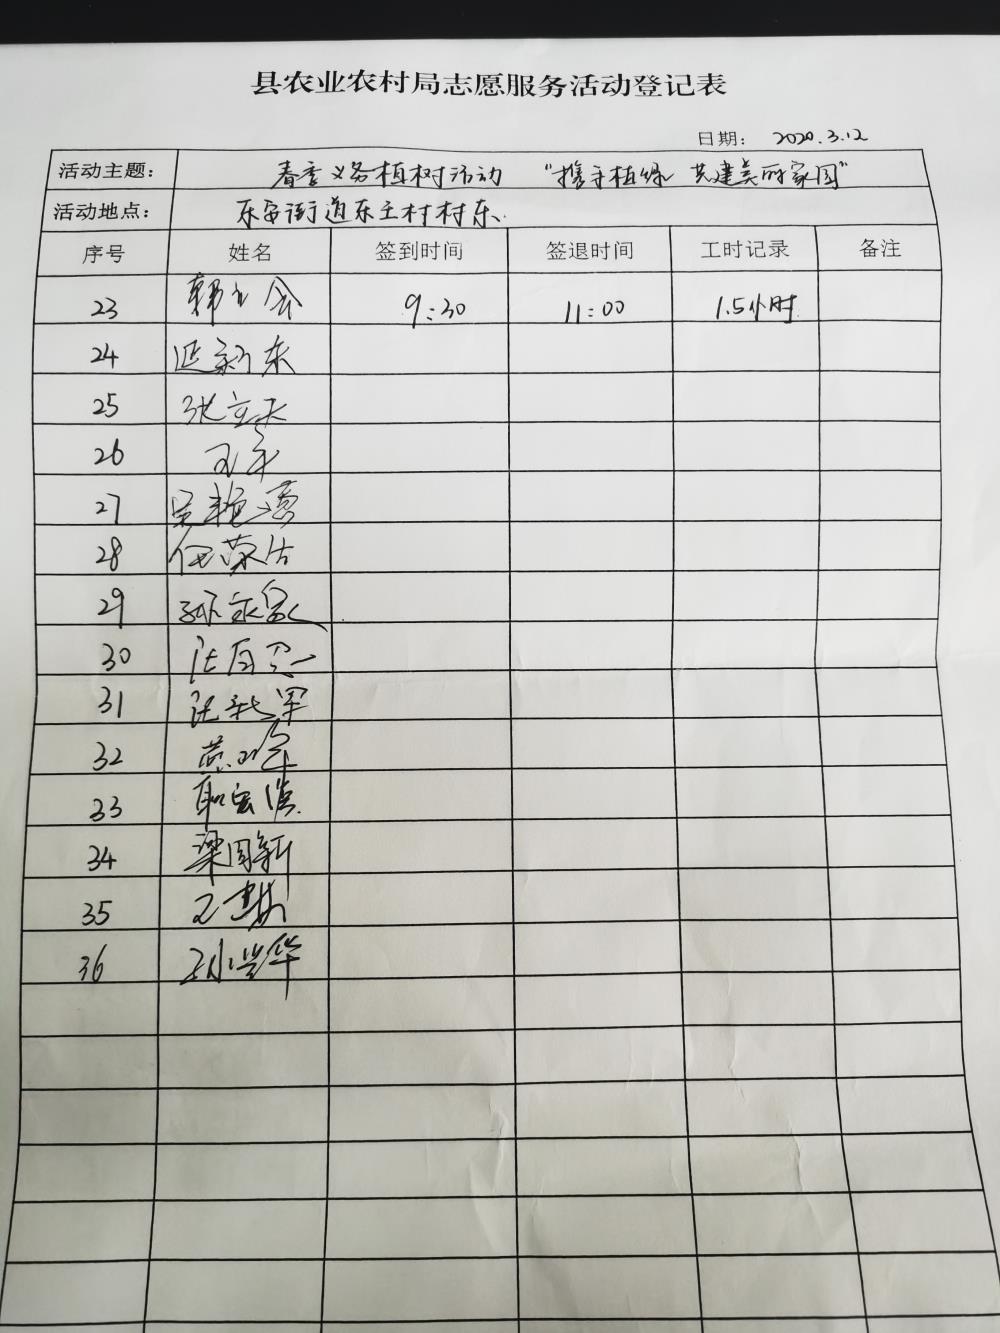 县农业农村局志愿服务活动登记表
日期： 2020.3.12
活动主题： 春季义务植树活动 "携手植绿 共建美丽家园"
活动地点： 乐安街道东王村村东
序号 姓名 签到时间 签退时间 工时记录 备注
23 9:30 11:00 1.5小时
24 延新东
25 张立天
26
27
28
29 孙永泉
30
31
32
33
34 梁国新
35
36 孙兴华